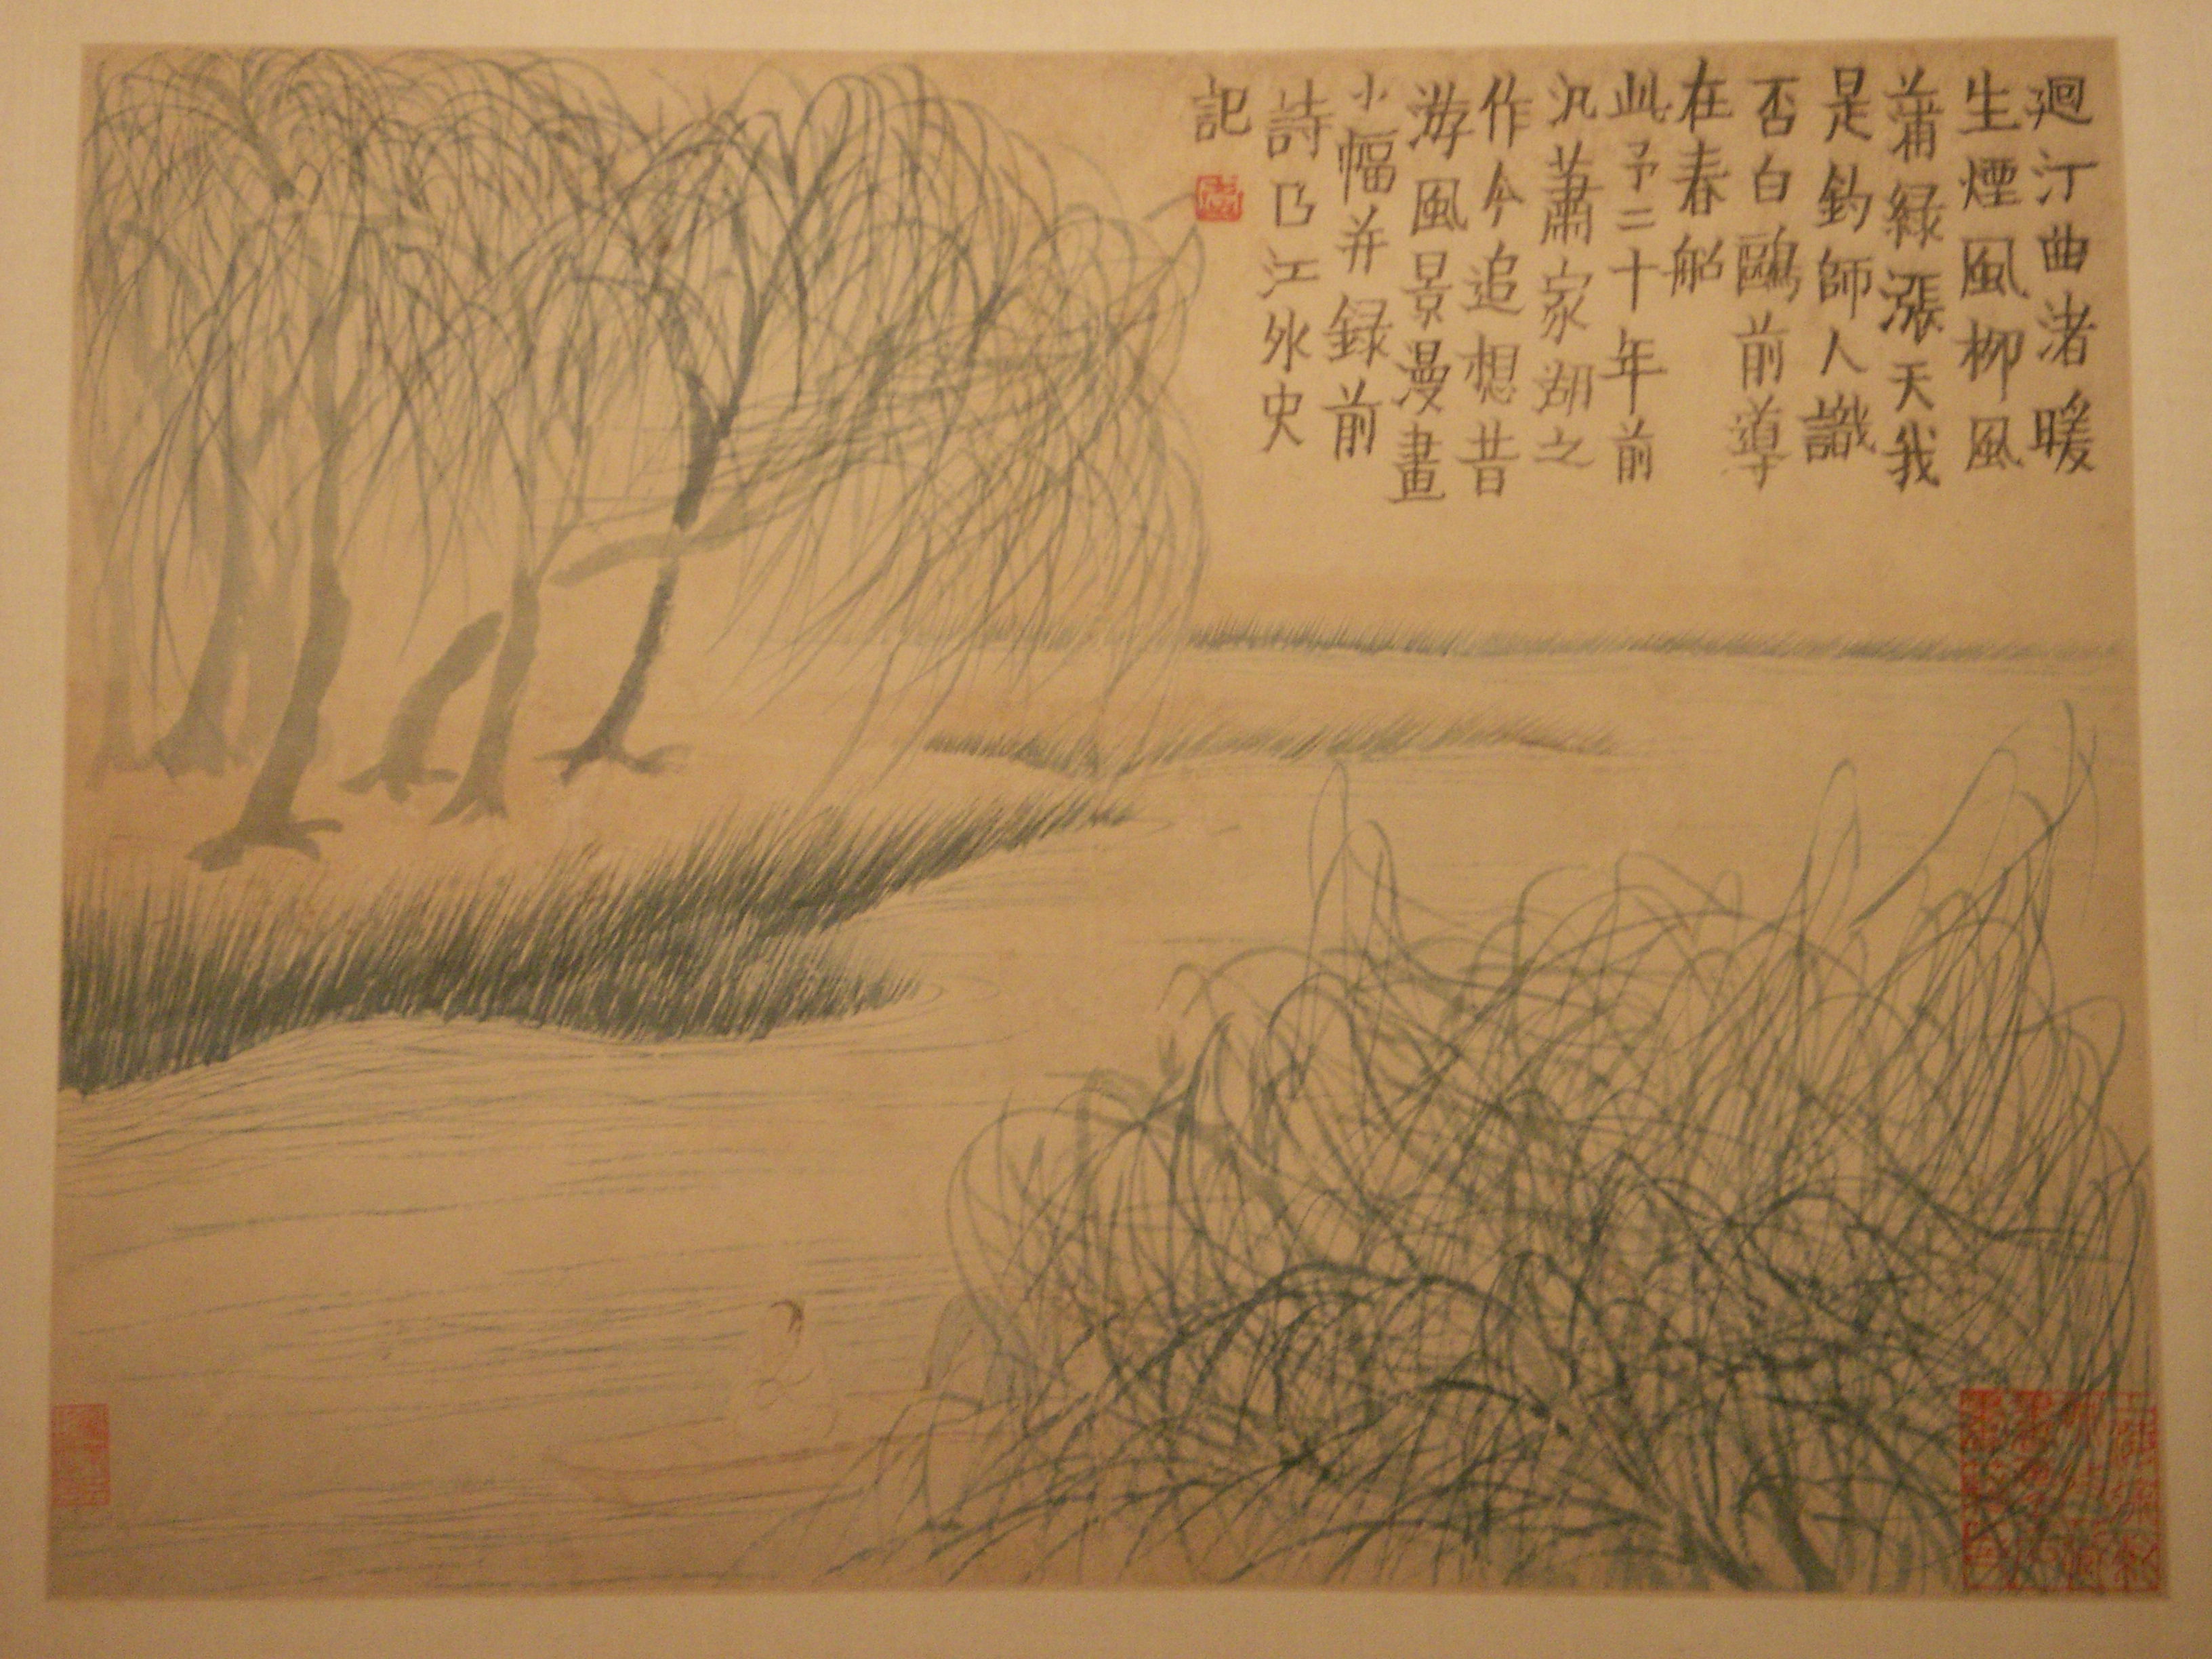 迴汀曲渚暖
生煙風柳風
蒲綠漲天我
是釣師人識
否白鷗前導
在春船
此予二十年前
汎蕭家湖之
作今追想昔
游風景漫畫
小幅并録前
詩曲江外史
記